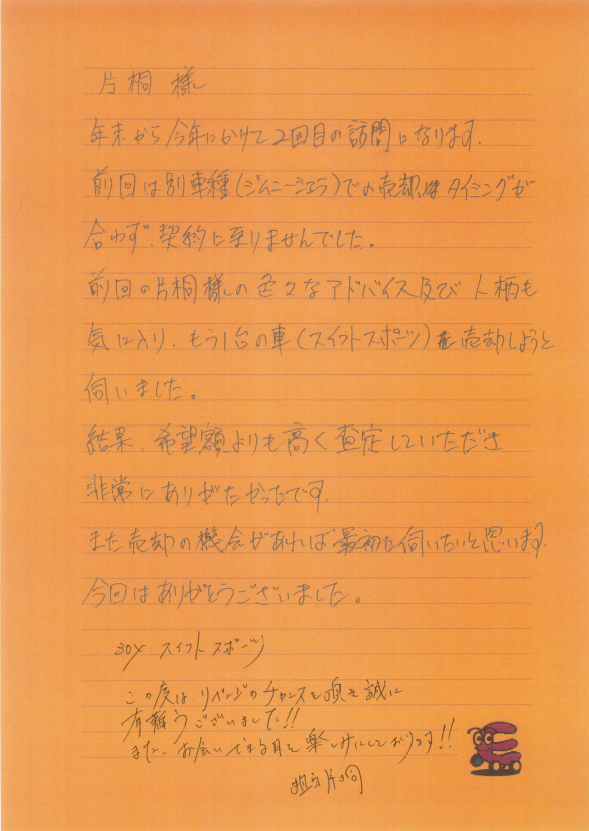 片桐 様
年末から今年にかけて2回目の訪問になります.
前回は別車種(ジムニーシエラ)での売却はタイミングが
合わず、契約に至りませんでした。
前回の片桐様の色々なアドバイス及び人柄も
気に入り、もう1台の車(スイフトスポーツ)を売却しようと
伺いました。
結果、希望額よりも高く査定していただき
非常にありがたかったです.
また売却の機会があれば最初に伺いたいと思います.
今回はありがとうございました。
30Y スイフトスポーツ
この度は、リベンジのチャンスを頂き誠に
有難うございました!!
また、お会いできる日を楽しみにしております!!
担当 片桐